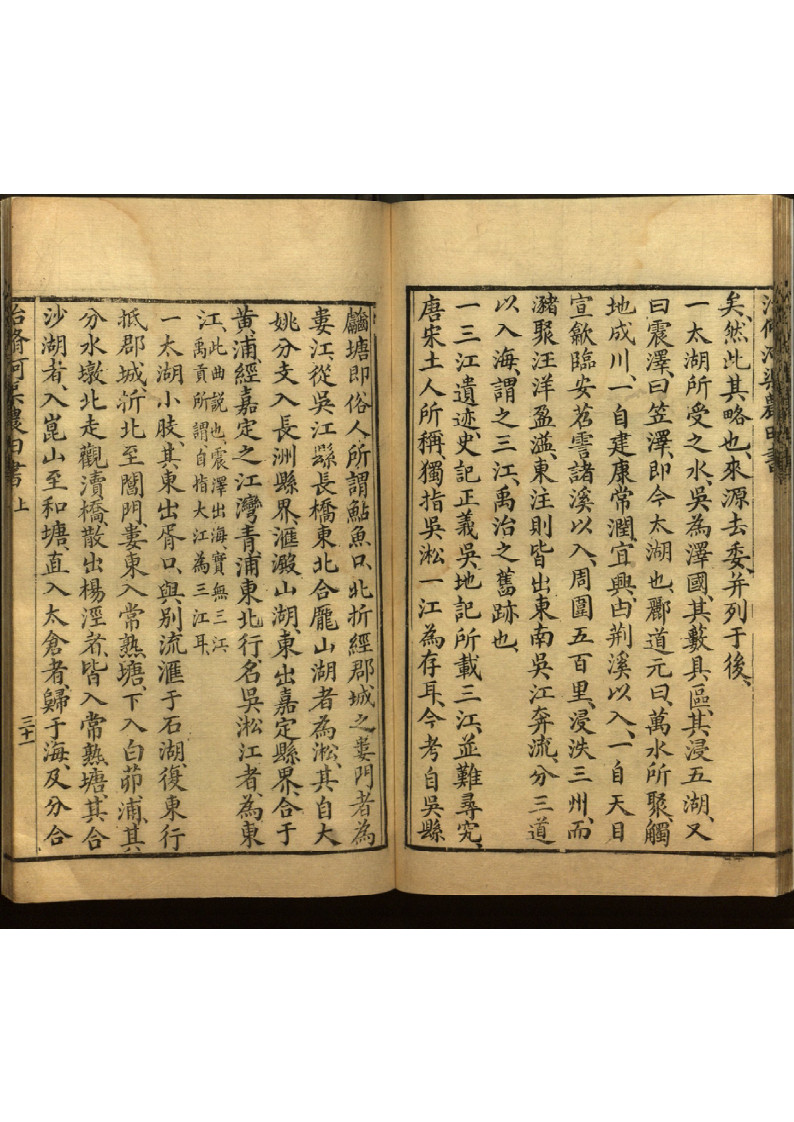 矣、然此其略也、來源去委、并列于後、
一太湖所受之水、吳為澤國、其藪具區、其浸五湖、又
曰震澤、曰笠澤、即今太湖也、酈道元曰、萬水所聚、觸
地成川、一自建康常潤宜興、由荆溪以入、一自天目
宣歙臨安苕霅諸溪以入、周圍五百里、浸泆三州、而
瀦聚汪洋盈溢、東注則皆出東南吳江奔流、分三道
以入海、謂之三江、禹治之舊跡也、
一三江遺迹、史記正義吳地記所載三江、並難尋究、
唐宋土人所稱、獨指吳淞一江為存耳、今考自吳縣
鱸塘即俗人所謂鮎魚口、北折經郡城之婁門者為
婁江、從吳江縣長橋東北合龎山湖者為淞、其自大
姚分支入長洲縣界、滙澱山湖、東出嘉定縣界、合于
黃浦、經嘉定之江灣青浦東北行、名吳淞江者、為東
江、此曲說也、震澤出海、實無三江、
禹貢所謂自指大江為三江耳、
一太湖小肢、其東出胥口、與別流滙于石湖、復東行
抵郡城、折北至閶門、婁東入常熟塘、下入白茆浦、其
分水墩北走觀瀆橋、散出楊涇者、皆入常熟塘、其合
沙湖者、入崑山至和塘、直入太倉者、歸于海、及分合
治齊河渠農田書 上 三十一